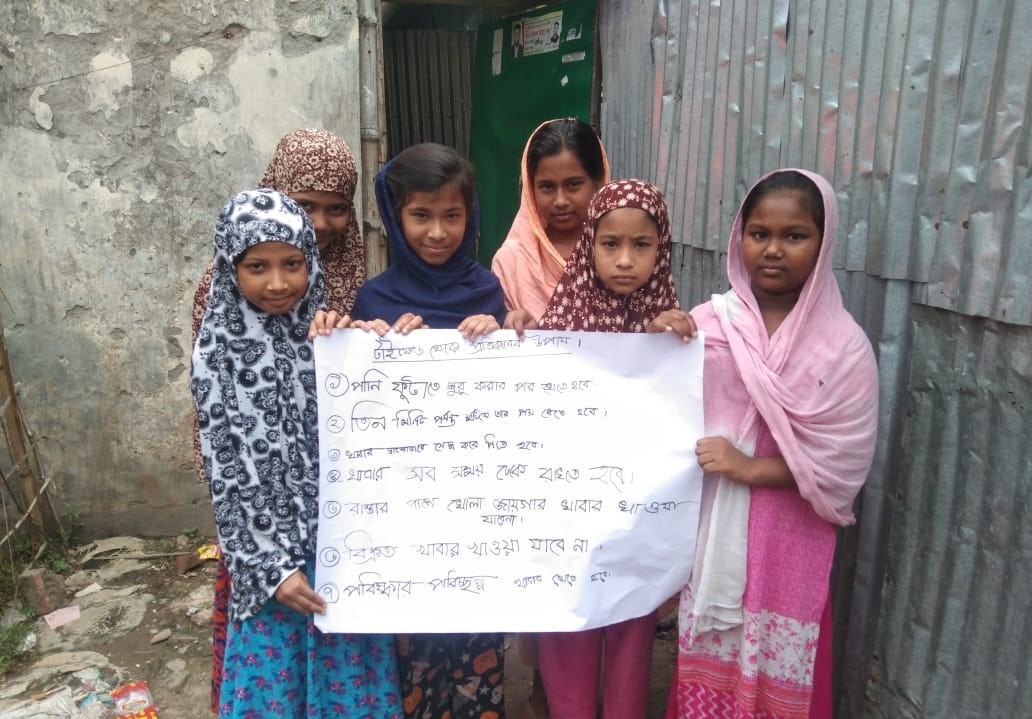 টাইফয়েড থেকে প্রতিকারের উপায়।
১ পানি ফুটাতে শুরু করার পর
২ তিন মিনিট পর্যন্ত হবে।
৩ খাবার ভালোভাবে সেদ্ধ করে নিতে হবে।
৪ খাবার সব সময় ঢেকে রাখতে হবে।
৫ রাস্তার পাশে খোলা জায়গার খাবার খাওয়া
যাবেনা।
৬ বিক্রত খাবার খাওয়া যাবে না।
৭ পরিষ্কার পরিচ্ছন্ন খাবার খেতে হবে।